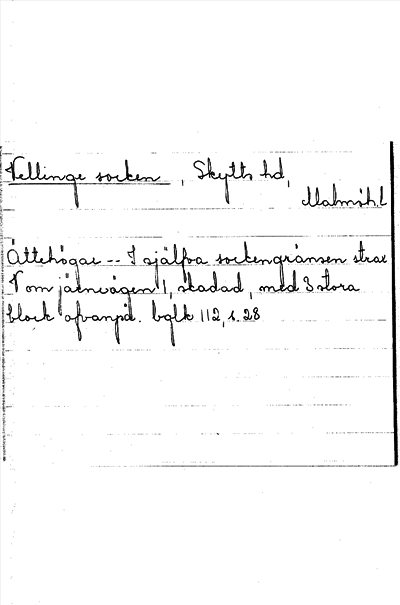 Vellinge socken, Skytts hd,
Malmöhl
Ättehögar -- I själfva sockengränsen strax
V om järnvägen 1, skadad, med 3 stora
block ofvanpå. bglk 112, s. 28